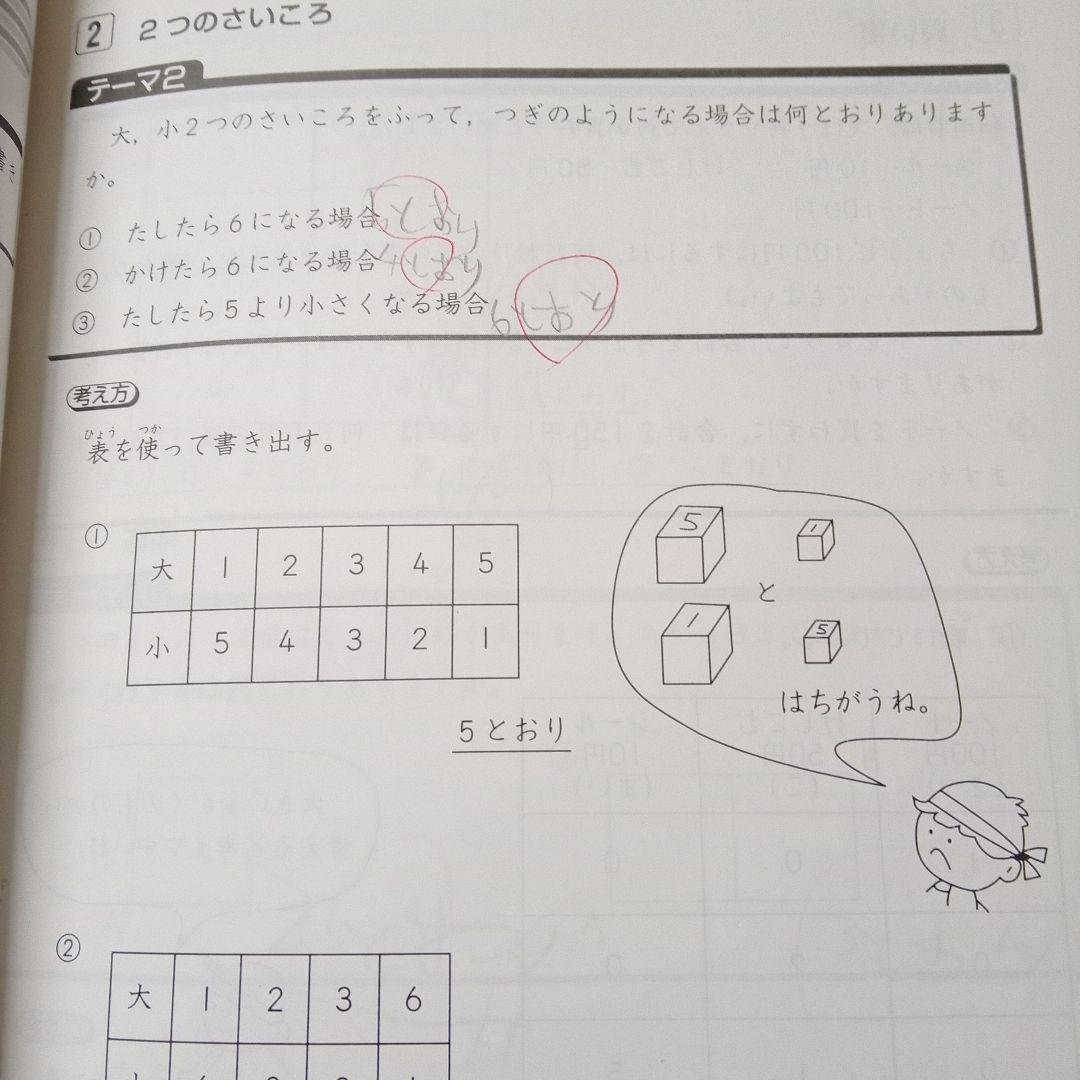 2 2つのさいころ
テーマ2
大，小2つのさいころをふって，つぎのようになる場合は何とおりあります
か。
① たしたら6になる場合 5とおり
② かけたら6になる場合 4とおり
③ たしたら5より小さくなる場合 6とおり
考え方
ひょう つか
表を使って書き出す。
①
大 1 2 3 4 5
小 5 4 3 2 1
5とおり
5 1
と
1 5
はちがうね。
②
大 1 2 3 6